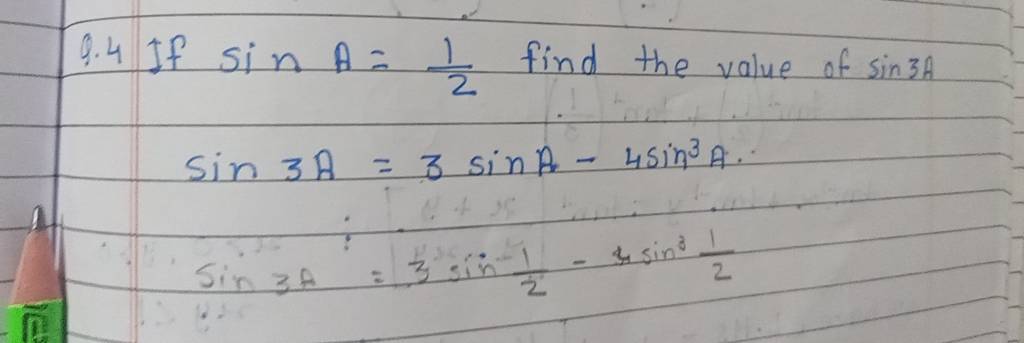 Q.4 If sin A = 1/2 find the value of sin 3A
sin 3A = 3 sin A - 4sin³A.
Sin 3A = 3 sin 1/2 - 4 sin³ 1/2